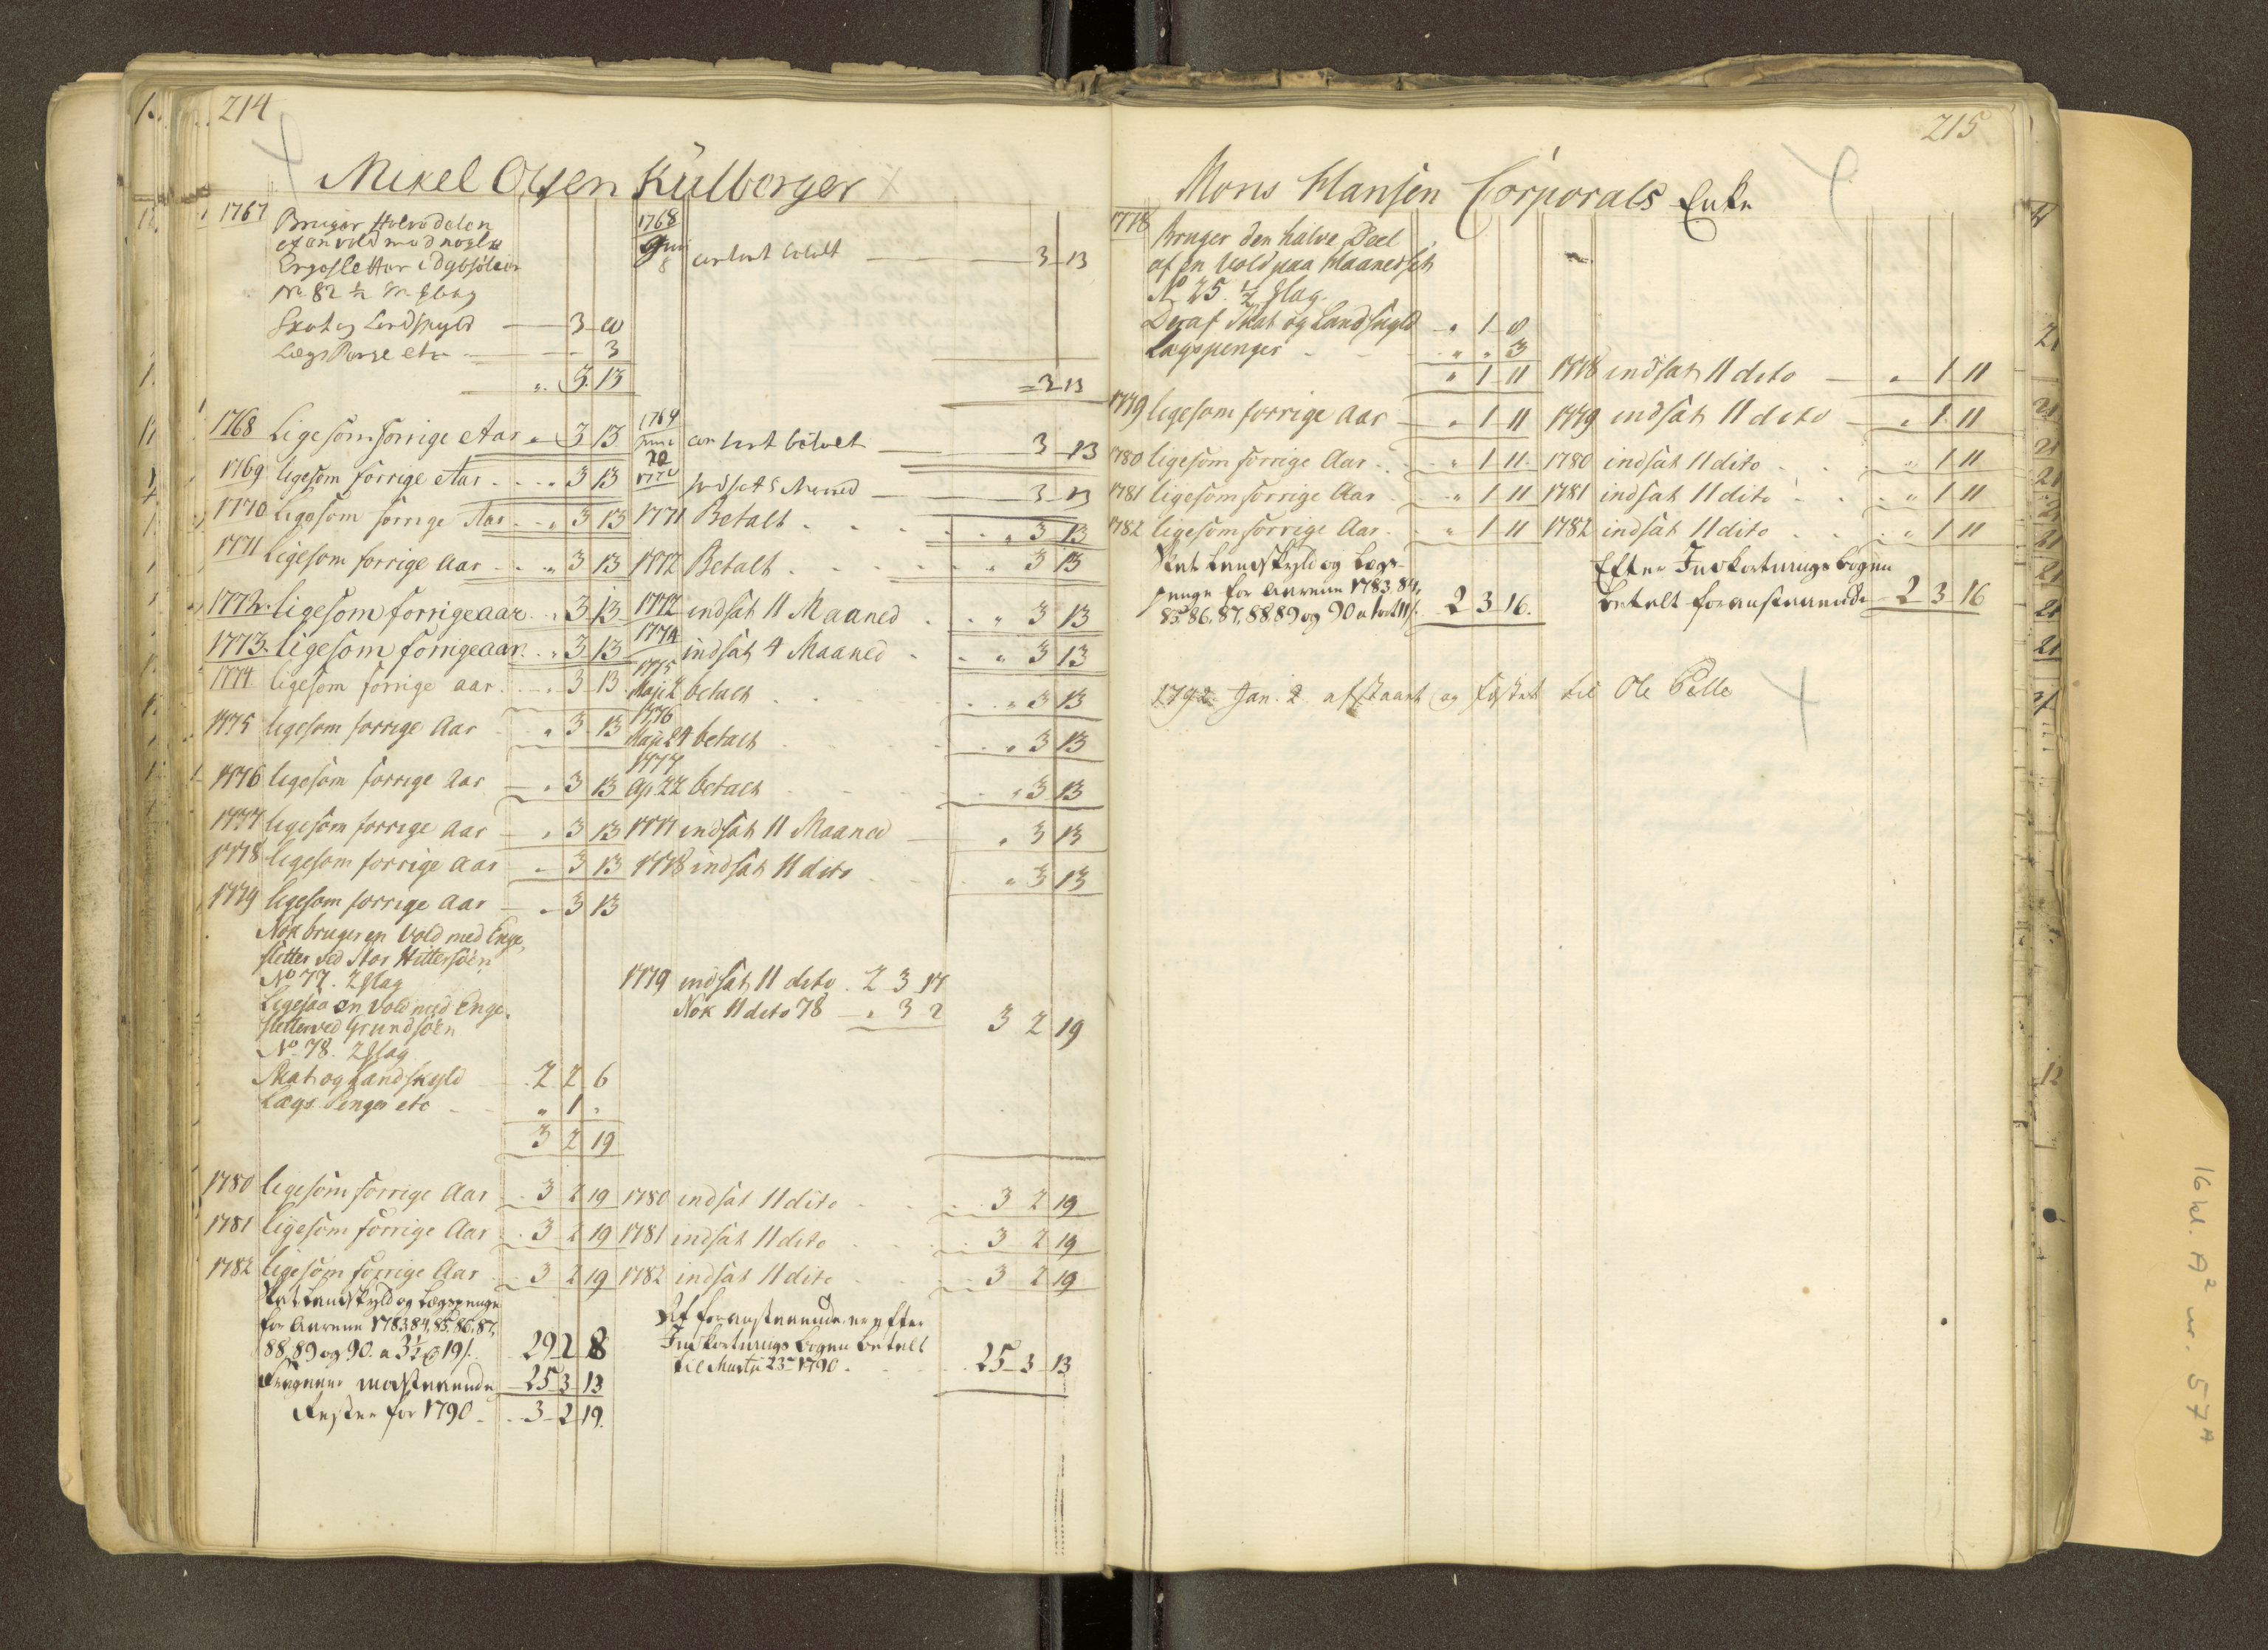 214
Mikel Olsen Külborger
1767 Bruger Halve Delen
af en vold med nogle
Engesletter
No 82 ½ 
Skat og Landskyld 3 8
Lægs Penge etc 3
" 3 13
1768 Ligesom forrige Aar " 3 13
1769 ligesom forrige Aar " 3 13
1770 ligesom forrige Aar " 3 13
1771 Ligesom forrige Aar " 3 13
1772 ligesom forrige aar " 3 13
1773 ligesom forrige aar " 3 13
1774 ligesom forrige aar " 3 13
1775 ligesom forrige Aar " 3 13
1776 ligesom forrige Aar " 3 13
1777 ligesom forrige Aar " 3 13
1778 ligesom forrige Aar " 3 13
1779 ligesom forrige Aar " 3 13
Nok bruger en Vold med Enge
sletter ved Stor Hittersöen
No 77. 2 Slag
Ligesaa en Vold med Enge
sletter ved Grundsöen
No 78. 2 Slag
Skat og Landskyld 2 2 6
Lægs Penger etc " 1 "
3 2 19
1780 ligesom forrige Aar 3 2 19
1781 ligesom forrige Aar 3 2 19
1782 ligesom forrige Aar 3 2 19
Skat Landskyld og Lægspenge
for Aarene 1783, 84, 85, 86, 87,
88, 89 og 90. a 3½ 19/. 29 2 8
modstaaende 25 3 13
Rester for 1790 3 2 19.
1768
Juni
8 betalt 3 13
= 3 13
1769
Juni
20 betalt 3 13
1770 indsat 3 13
1771 Betalt " 3 13
1772 Betalt " 3 13
1772 indsat 11 Maaned " 3 13
1774 indsat 4 Maaned " 3 13
1775
Maji 2 betalt " 3 13
1776
Maji 24 betalt " 3 13
1777
Apr 22 betalt " 3 13
1777 indsat 11 Maaned " 3 13
1778 indsat 11 dito " 3 13
1779 indsat 11 dito 2 3 17
Nok 11 dito 78 " 3 2 3 2 19
1780 indsat 11 dito 3 2 19
1781 indsat 11 dito 3 2 19
1782 indsat 11 dito 3 2 19
Af foranstaaende er efter
Indkortnings bogen betalt
til Martii 23 1790. 25 3 13
215
Mons Hansen Corporals Enke
1778 Bruger den halve Deel
af en Vold paa Haaneset
No 25. ½ Slag.
Deraf Skat og Landskyld " 1 8
Lægspenger " " 3
" 1 11
1779 ligesom forrige Aar " 1 11
1780 ligesom forrige Aar " 1 11
1781 ligesom forrige Aar " 1 11
1782 ligesom forrige Aar " 1 11
Skat Landskyld og Lægs-
penge for Aarene 1783, 84,
85, 86, 87, 88, 89 og 90 a 1 ort 11/. 2 3 16.
1778 indsat 11 dito " 1 11
1779 indsat 11 dito " 1 11
1780 indsat 11 dito " 1 11
1781 indsat 11 dito " 1 11
1782 indsat 11 dito " 1 11
Efter Indkortnings bogen
betalt foranstaaende 2 3 16
1792 Jan. 2. afstaaet og fæstet til Ole Pelle
16 kl. A² nr. 57ᴬ